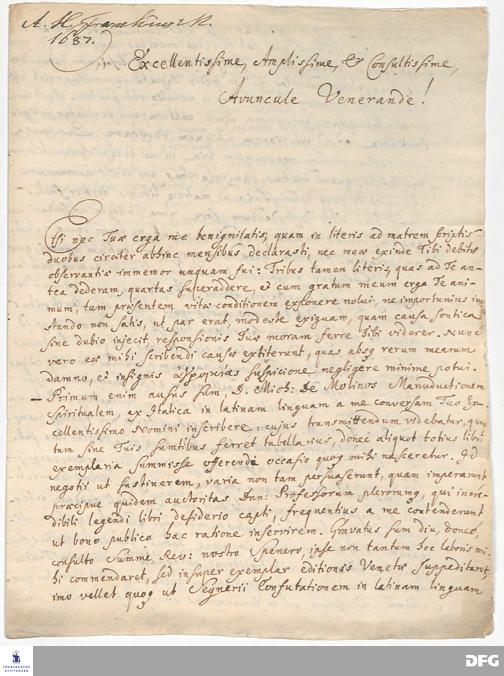 A. H. Franckius
1687.
Vir Excellentissime, Amplissime, & Consultissime,
Avuncule Venerande!
Etsi nec Tuæ erga me benignitatis, quam in literis ad matrem scriptis
duobus circiter abhinc mensibus declarasti, nec meæ exinde Tibi debitæ
observantiæ immemor unquam fui: Tribus tamen literis, quas ad Te an-
tea dederam, quartas superaddere, & cum gratum meum erga Te ani-
mum, tum præsentem vitæ conditionem exponere nolui, ne importunius in-
stando non satis, ut par erat, modeste exiguam, quam causa sontica
sine dubio injecit, responsionis Tuæ moram ferre Tibi viderer. Nunc
vero eæ mihi scribendi causæ extiterunt, quas absq rerum mearum
damno, & insignis suspicione negligere minime potui.
Primum enim ausus sum, D. Mich: de Molinos Manuductionem
Spiritualem, ex Italica in latinam linguam a me conversam Tuo Ex-
cellentissimo Nomini inscribere: cujus transmittendum videbatur, quan
tum sine Tuis sumtibus ferret tabellarius, donec aliquot totius libri
exemplaria summisse offerendi occasio quoq mihi nasceretur. Id
negotii ut sustinerem, varia non tam persuaserunt, quam imperarunt
præcipue quidem auctoritas Dnn: Professorum plerorumq, qui incre-
dibili legendi libri desiderio capti, frequentius a me contenderunt
ut bono publico hac ratione inservirem. Gravatus sum diu, donec
consulto Summe Rev: nostro Spenero, ipse non tantum hoc laboris mi-
hi commendaret, sed insuper exemplar editionis Venetæ suppeditaret,
imo vellet quoq ut Segnerii Confutationem in latinam linguam
FRANCKESCHE
STIFTUNGEN
DFG